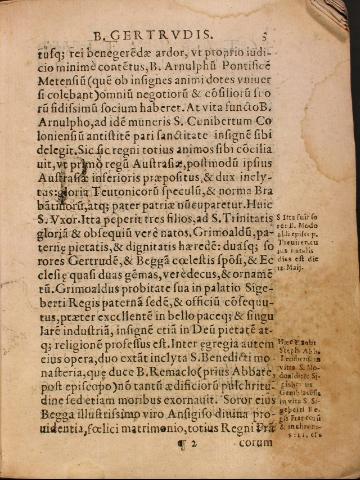 B. GERTRVDIS. 5
tusq; rei benegerēdæ ardor, vt proprio iudi-
cio minimè contētus, B. Arnulphū Pontificē
Metensiū (quē ob insignes animi dotes vniuer
si colebant) omniū negotiorū & cōsiliorū suo
rū fidissimū socium haberet. At vita functo B.
Arnulpho, ad idē muneris S. Cunibertum Co
loniensiū antistitē pari sanctitate insignē sibi
delegit. Sic sic regni totius animos sibi cōcilia
uit, vt primò regū Austrasiæ, postmodū ipsius
Austrasiæ inferioris præpositus, & dux inclytus:
gloria Teutonicorū speculū, & norma Bra
bātinorū, atq; pater patriæ nūcuparetur. Huic
S. Vxor. Itta peperit tres filios, ad S. Trinitatis
gloriā & obsequiū verè natos. Grimoaldū, pa-
ternę pietatis, & dignitatis hæredē: duasq; so
rores Gertrudē, & Beggā cœlestis spōsi, & Ec
clesię quasi duas gēmas, verè decus, & orname
tū. Grimoaldus probitate sua in palatio Sige-
berti Regis paternā sedē, & officiū cōsequu-
tus, pręter excellentē in bello paceq; & singu
larē industriā, insignē etiā in Deū pietatē at-
q; religionē professus est. Inter egregia autem
eius opera, duo extāt inclyta S. Benedicti mo
nasteria, quę duce B. Remaclo (prius Abbate,
post episcopo) nō tantū ædificiorū pulchritu-
dine sed etiam moribus exornauit. Soror eius
Begga illustrissimo viro Ansigiso diuina pro-
uidentia, fœlici matrimonio, totius Regni Frā
¶ 2 corum
S Itta fuit so
ror B. Modo
aldi episcop.
Treuiren. cu
ius natalis
dies est die
12. Maij.
Steph. Abb.
vita S. Mo-
doaldi &
Gemblacēsis
in vita S. Si-
geberti Re-
gis Francorū
& in chroni-